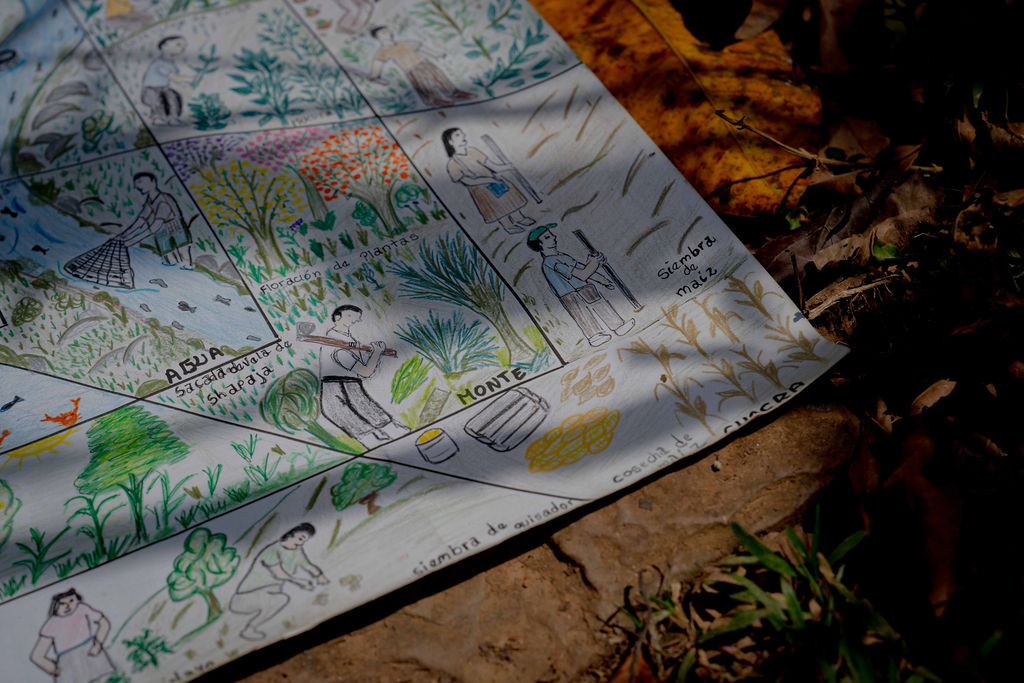 Floración de Plantas
Siembra
de
maiz
AGUA
Sacada de vala de
shapaja
MONTE
CHACRA
cosecha de
siembra de quisador